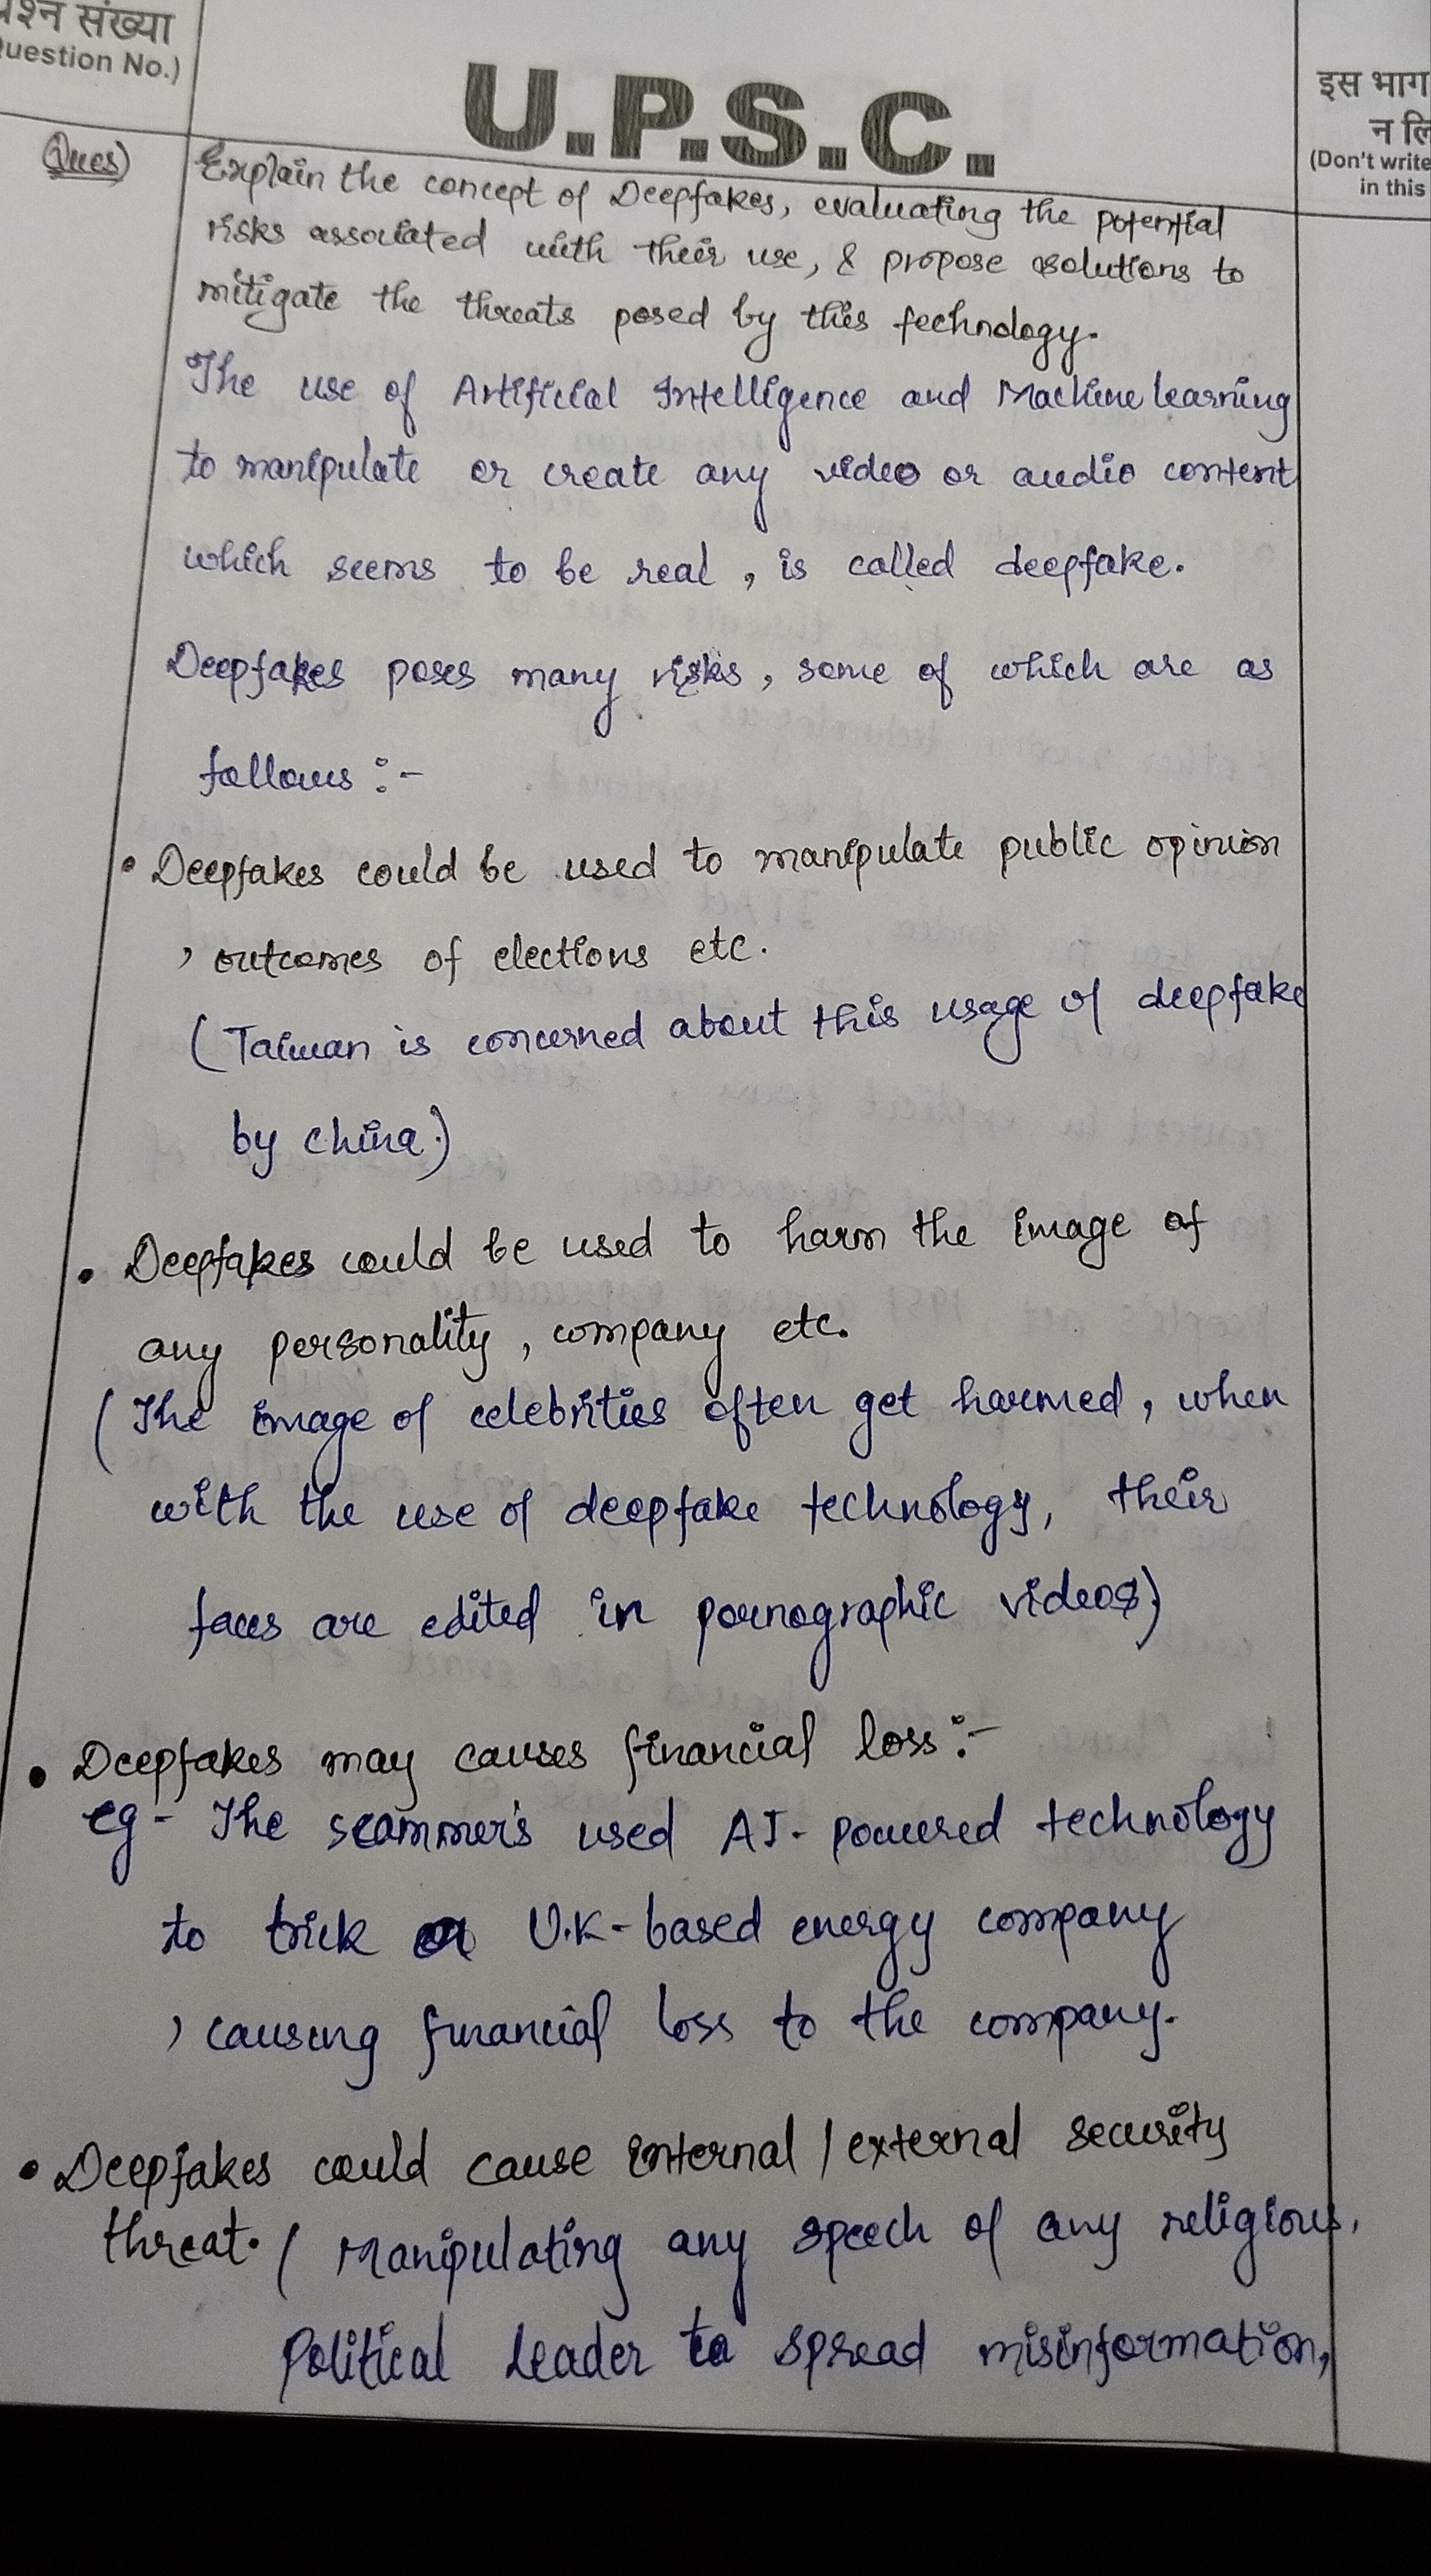 प्रश्न संख्या
(Question No.)
U.P.S.C.
इस भाग
न लि
(Don't write
in this
Ques)
Explain the concept of Deepfakes, evaluating the potential
risks associated with their use, & propose solutions to
mitigate the threats posed by this technology.
The use of Artificial Intelligence and Machine learning
to manipulate or create any video or audio content
which seems to be real, is called deepfake.
Deepfakes poses many risks, some of which are as
follows :-
• Deepfakes could be used to manipulate public opinion
, outcomes of elections etc.
(Taiwan is concerned about this usage of deepfake
by China.)
• Deepfakes could be used to harm the image of
any personality, company etc.
(The image of celebrities often get harmed, when
with the use of deepfake technology, their
faces are edited in pornographic videos)
• Deepfakes may causes financial loss :-
eg- The scammer's used AI- powered technology
to trick a U.K-based energy company
, causing financial loss to the company.
• Deepfakes could cause internal / external security
threat. ( Manipulating any speech of any religious,
Political Leader to spread misinformation,